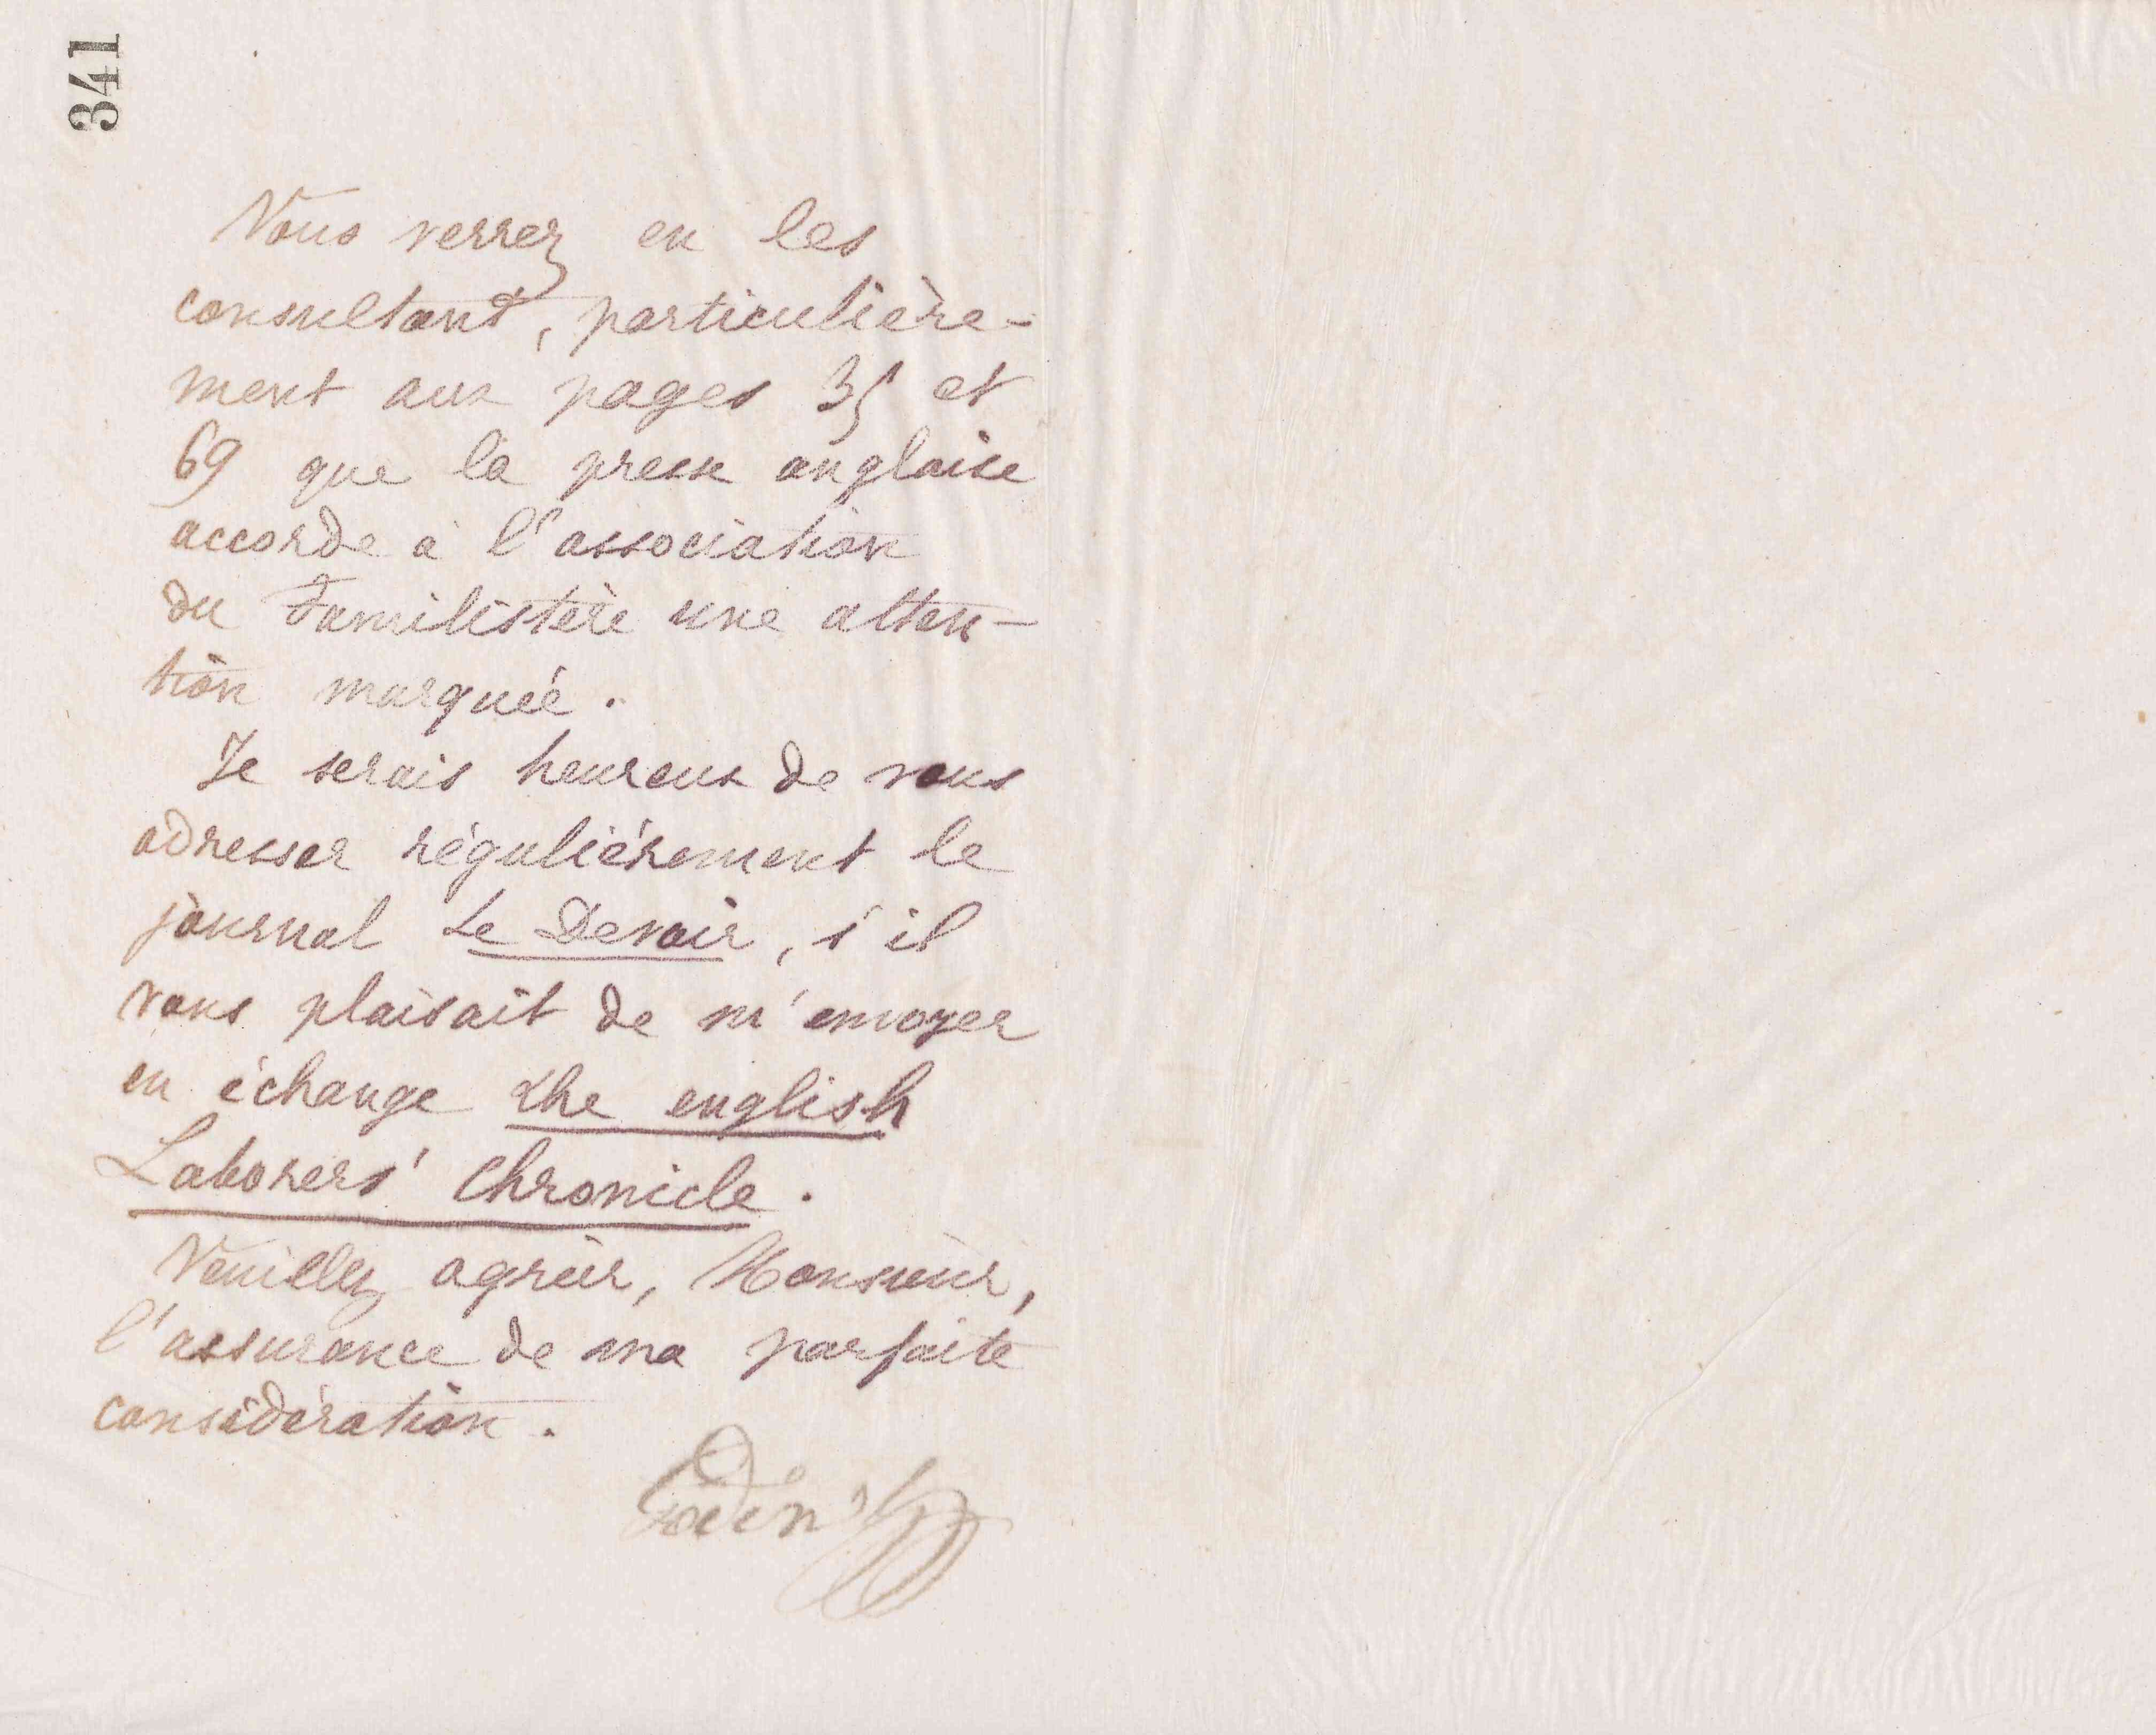 341
Vous verrez en les
consultant, particulière-
ment aux pages 35 et
69 que la presse anglaise
accorde à l'association
du Familistère une atten-
tion marquée.
Je serais heureux de vous
adresser régulièrement le
journal Le Devoir, s'il
vous plaisait de m'envoyer
en échange the english
Laborers' Chronicle.
Veuillez agréer, Monsieur,
l'assurance de ma parfaite
considération.
Godin